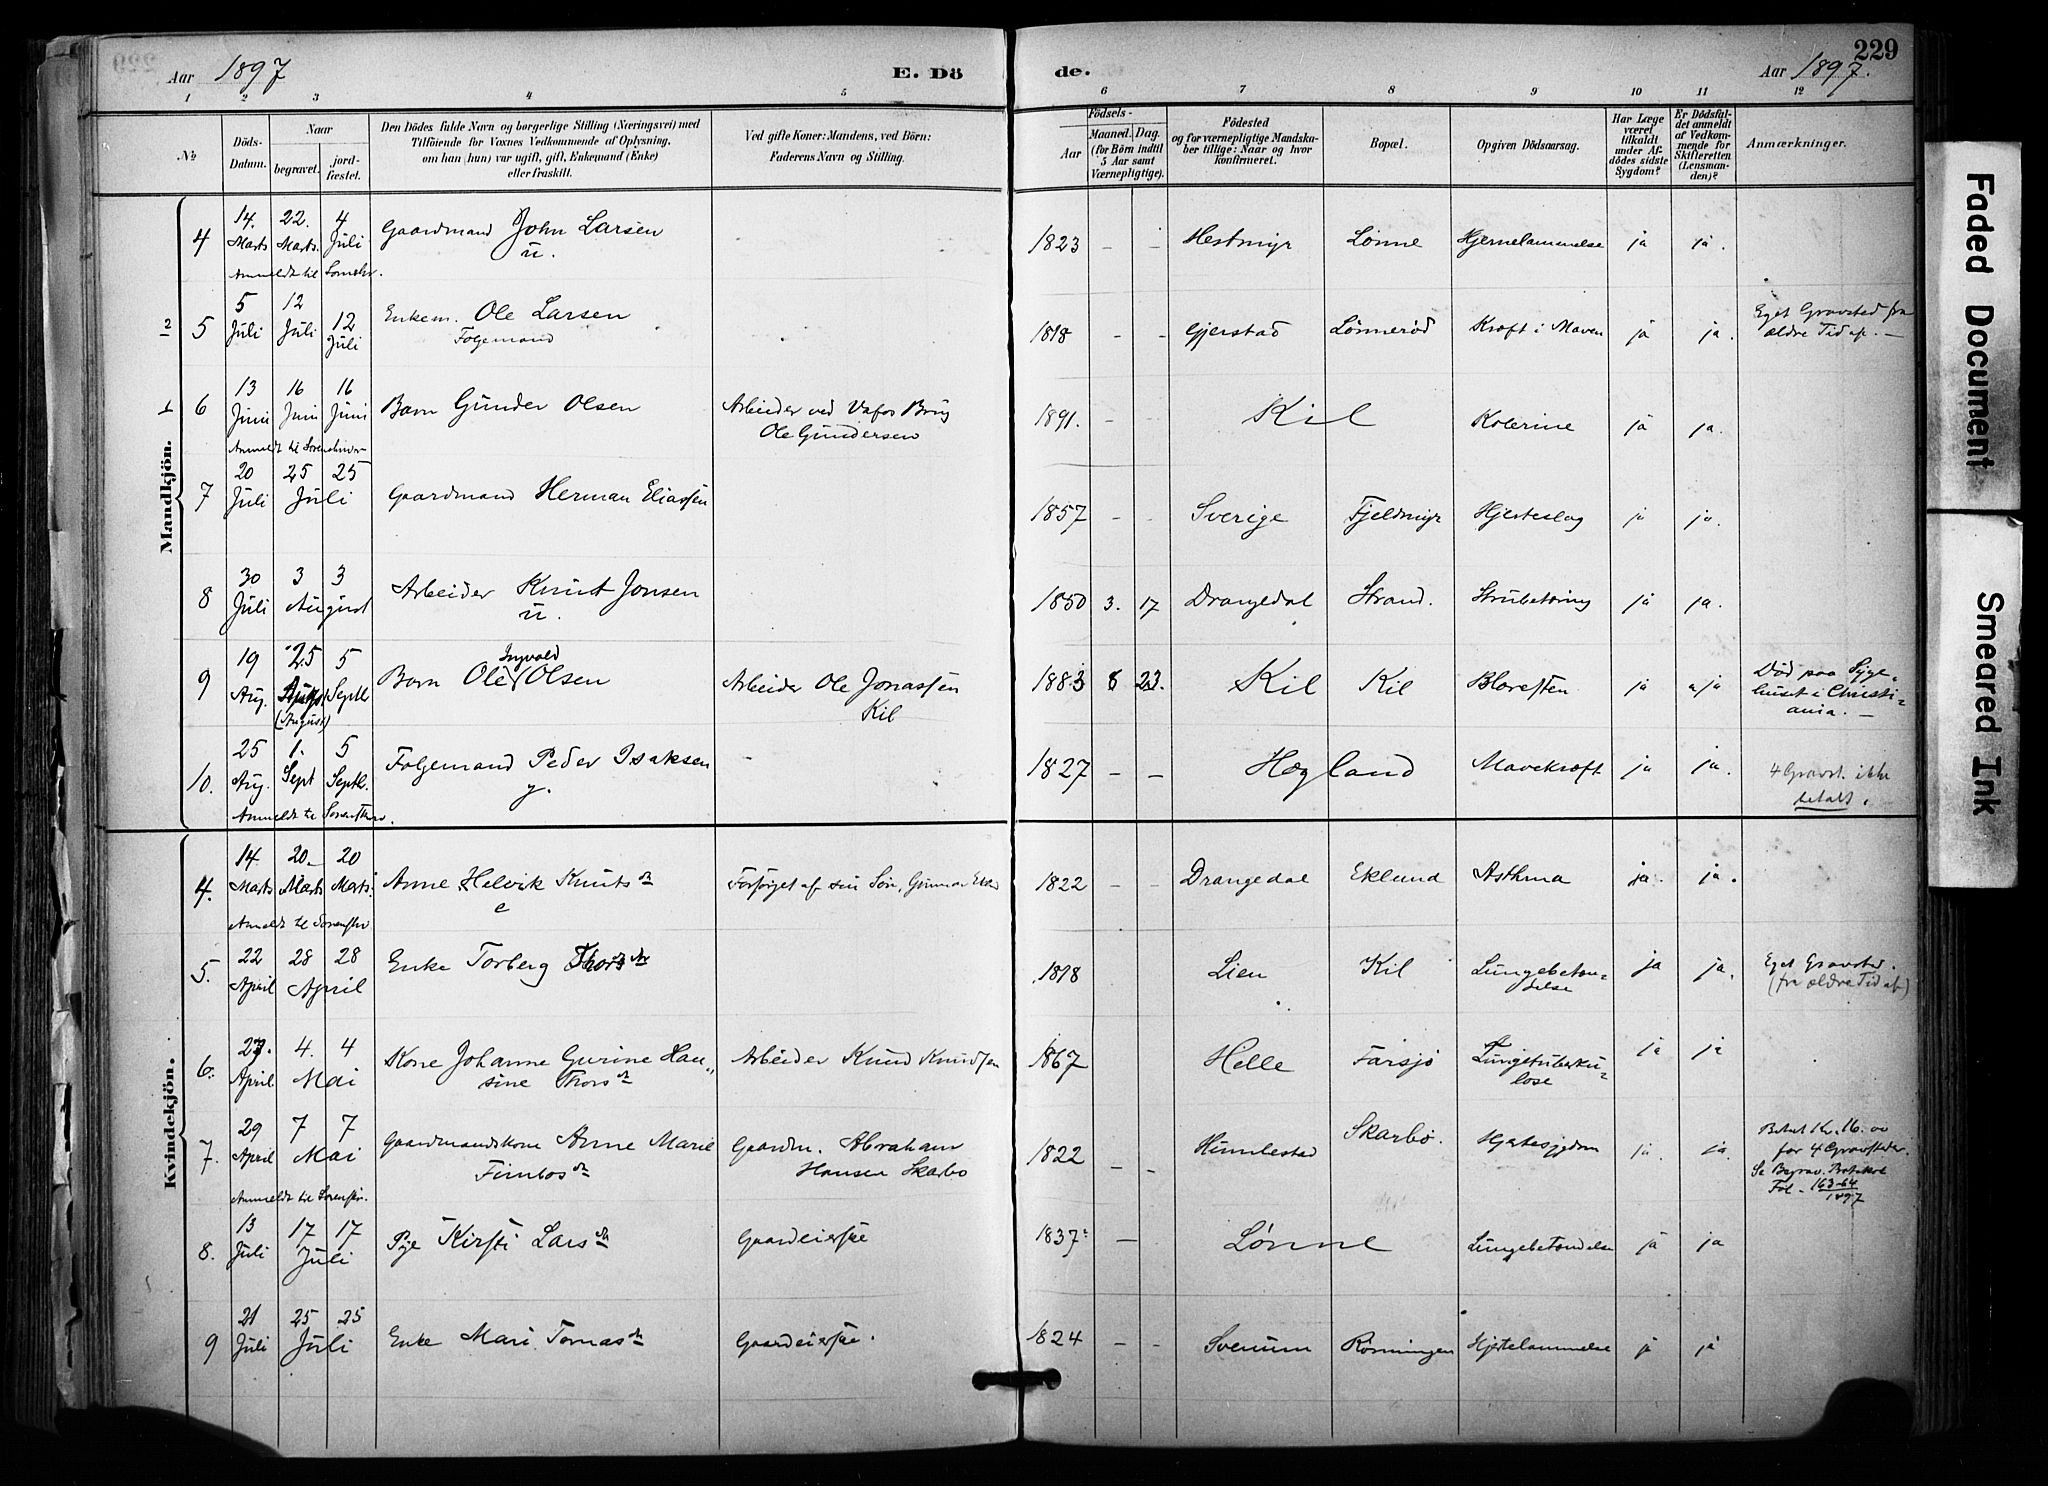 229
Aar 1897
E. Dö
de.
Aar 1897.
1 2 3 4 5 6 7 8 9 10 11 12
No
Döds-Datum.
Naar
begravet.
jord-fæstet.
Den Dödes fulde Navn og borgerlige Stilling (Næringsvei) med
Tilföiende for Voxnes Vedkommende af Oplysning,
om han (hun) var ugift, gift, Enkemand (Enke)
eller fraskilt.
Ved gifte Koner: Mandens, ved Börn:
Faderens Navn og Stilling.
Födsels-
Aar
Maaned. Dag.
(for Börn indtil
5 Aar samt
Værnepligtige).
Födested
og for værnepligtige Mandska-
ber tillige: Naar og hvor
konfirmeret.
Bopæl.
Opgiven Dödsaarsag.
Har Læge
været
tilkaldt
under Af-
dödes sidste
Sygdom?
Er Dödsfal-
det anmeldt
af Vedkom-
mende for
Skifteretten
(Lensman-
den)?
Anmærkninger.
Mandkjön.
4 14. Marts 22. Marts 4 Juli Gaardmand John Larsen u. 1823 - - Hestmyr Lønne Hjernelammelse ja ja.
Anmeldt til
2 5 5 Juli 12 Juli 12 Juli Enkem. Ole Larsen 1818 - - Gjerstad Lønnerød Kræft i Maven ja ja. Eget Gravsted fra
Folgemand ældre Tid af. -
1 6 13 Juni 16 Juni 16 Juni Barn Gunder Olsen Arbeider ved Vafos Brug 1891. - Kil Kolerine ja ja.
Ole Gundersen
Anmeldt til
7 20 Juli 25 25 Juli Gaardmand Herman Eliassen 1857 - - Sverige Fjeldmyr Hjerteslag ja ja.
8 30 Juli 3 3 August Arbeider Knut Jonsen u. 1850 3. 17 Drangedal Strand. Strubetæring ja ja.
9 19 Aug. 25 (August) 5 Septbr Barn Ole Ingvald Olsen Arbeider Ole Jonassen 1883 23. Kil Kil ja ja Død paa Syge-
Kil huset i Christi-
ania. -
10. 25 Aug. 1. Sept 5 Septb. Folgemand Peder Isaksen g. - 1827 - - Hægland Mavekræft ja ja. 4 Gravst. ikke
betalt.
Anmeldt til
Kvindekjön.
4. 14 Marts 20 Marts 20 Marts Anne Helvik Knutsdr e Forsørget af sin Søn, Gunnar 1822 - - Drangedal Eklund Asthma ja. ja.
Anmeldt til
5. 22 April 28 28 April Enke Torberg Thorsdr 1818 - - Lien Kil Lungebetæn-
delse ja ja. Eget Gravsted.
(fra ældre Tid af)
6. 27. April 4. 4 Mai Kone Johanne Gurine Han-
sine Thorsdr Arbeider Knud Knudsen 1867 - - Helle Farsjø Lungetuberku-
lose ja ja
7. 29 April 7 7 Mai Gaardmandskone Anne Marie Gaardm. Abraham 1822 - - Humlestad Skarbo. Hjertesygdom ja. ja. Betalt Kr. 16.00
Finbosdr Hansen Skarbo for 4 Gravsteder.
Se Begrav. Protokol
Fol. 163-64
1897
Anmeldt til
8. 13 Juli 17 17 Juli Pige Kirsti Larsdr Gaardeierske 1837 - Lønne Lungebetændelse ja ja
9 21 Juli 25 25 Juli Enke Mari Tomasdr Gaardeierske. 1824 - - Svenum Rønningen Hjertelammelse ja ja
Faded Document
Smeared Ink